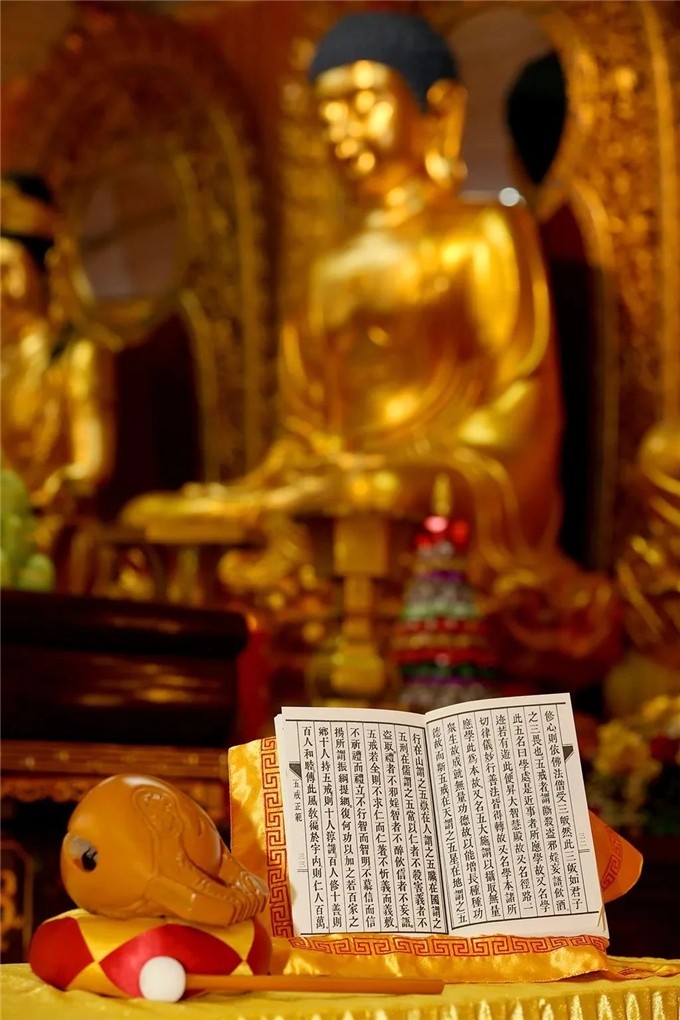 修心則依佛法僧受三皈然此三皈如君子
之三畏也五戒者謂斷殺盜婬妄諸飲酒
此五名曰學處是近事者所應學故又名學
迹若有遊此便昇大智慧殿故又名徑路一
切律儀妙行善法皆得轉故又名學本諸所
應學此爲本故又名五大施謂以攝取無量
眾生故成就無量功德故以能增長種種功
德故而斯五戒在天謂之五星在地謂之五
三二
行在山謂之五嶽在人謂之五臟在國謂之
五刑在儒謂之五常以仁者不殺害義者不
盜取禮者不邪婬智者不醉飲信者不妄語
五戒若全則不求仁而仁著不忻義而義敷
不祈禮而禮立不行智而智明不慕信而信
揚所謂振綱提網復何功以加之若百家之
鄉十人持五戒則十人淳謹百人修十善則
百人和睦傳此風教徧於宇內則仁人百萬
五戒正範
三三